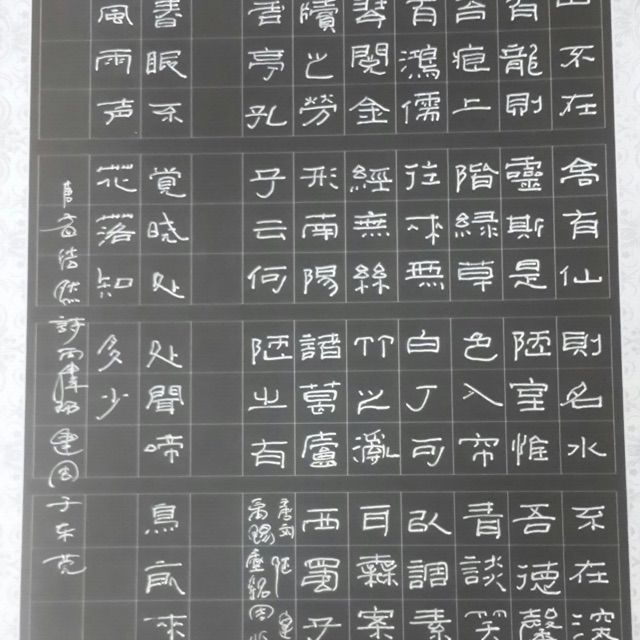 山不在高有仙則名水不在深
有龍則靈斯是陋室惟吾德馨
苔痕上階緑草色入帘青談笑
有鴻儒往來無白丁可以調素
琴閱金經無絲竹之亂耳無案
牘之勞形南陽諸葛廬西蜀子
雲亭孔子云何陋之有
唐刘陋建
禹錫室銘国
春眠不覺晓处处聞啼鳥夜來
風雨声花落知多少
唐孟浩然詩建国于东莞